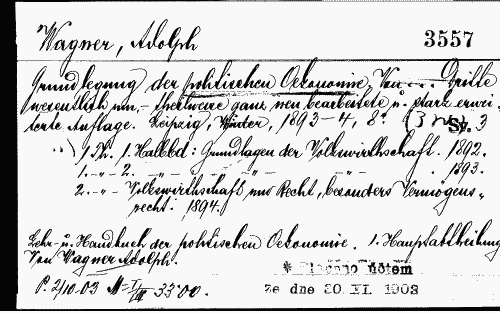 Wagner, Adolph 3557
Grundlegung der politischen Oekonomie. Von ... Dritte
wesentlich um- theilweise ganz neu bearbeitete u. stark erwei-
terte Auflage. Leipzig, Winter, 1893-4, 8°. (3 Sv. 3
1. Th. 1. Halbbd: Grundlagen der Volkswirthschaft. 1892.
1. -„- 2. -„- -„- -„- -„- . 1893.
2. -„- Volkswirthschaft und Recht, besonders Vermögens-
recht. 1894.
Lehr- u. Handbuch der politischen Oekonomie. 1. Hauptabtheilung
Von Wagner Adolph.
* Placeno účtem
P. 2/10.03 33·00.
ze dne 30. XI. 1903